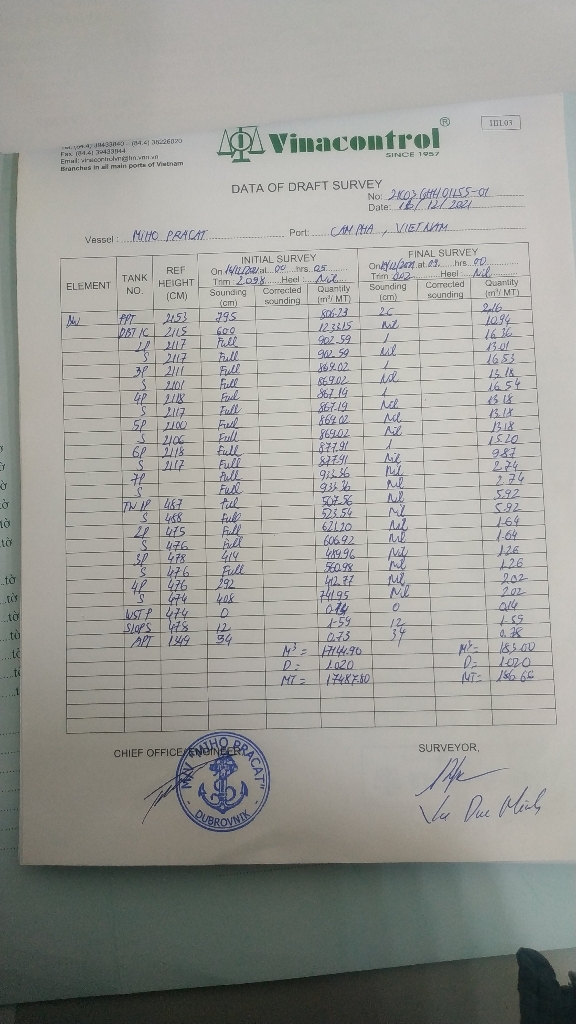 Fax: (84.4) 39433844
Email: vinacontrolvn@hn.vnn.vn
Branches in all main ports of Vietnam
Vinacontrol®
SINCE 1957
III.03
DATA OF DRAFT SURVEY
No:
Date: 16/12/2021
Vessel: MIHO PRACAT Port: CAM PHA, VIETNAM
ELEMENT TANK NO. REF HEIGHT (CM) INITIAL SURVEY FINAL SURVEY
On at hrs On at hrs
Trim 2.098 Heel: Nil Trim Heel Nil
Sounding (cm) Corrected sounding Quantity (m³/ MT) Sounding (cm) Corrected sounding Quantity (m³/ MT)
FPT 2153 795 806.73 2.16
DBT 1C 2115 600 1233.15 Nil 10.94
2P 2117 Full 902.59 1 16.36
S 2117 Full 902.59 Nil 13.01
3P 2111 Full 869.02 1 16.53
S 2101 Full 869.02 Nil 13.18
4P 2118 Full 867.19 1 16.54
S 2117 Full 867.19 Nil 13.18
5P 2100 Full 869.02 Nil 13.18
S 2106 Full 869.02 Nil 13.18
6P 2118 Full 877.91 1 15.20
S 2117 Full 877.91 Nil 9.87
7P Full 933.36 Nil 2.74
S Full 933.36 Nil 2.74
TW 1P 487 Full 507.56 Nil 5.92
S 488 Full 523.54 Nil 5.92
2P 475 Full 621.20 Nil 1.64
S 476 Full 606.92 Nil 1.64
3P 478 414 Nil 1.26
S 476 Full 560.98 Nil 1.26
4P 476 292 412.77 Nil 2.02
S 474 408 741.95 Nil 2.02
WST P 474 0 0.14 0 0.14
SLOP S 478 12 1.59 12 1.59
APT 1349 34 0.73 34 0.78
M³ = 17144.90 M³ = 183.00
D = 1.020 D = 1.020
MT = 17487.80 MT = 186.66
CHIEF OFFICE/ENGINEER SURVEYOR,
M/V "MIHO PRACAT"
DUBROVNIK
Vu Duc Minh